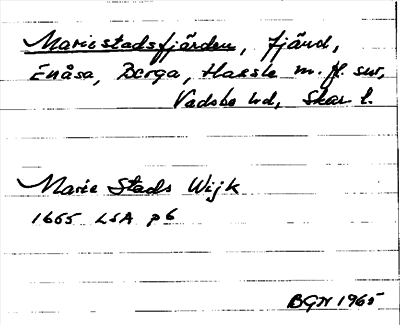 Mariestadsfjärden, fjärd,
Enåsa, Berga, Hassle m. fl. snr,
Vadsbo hd, Skar l.
Marie Stads Wijk
1655 LSA p 6
BGN 1965